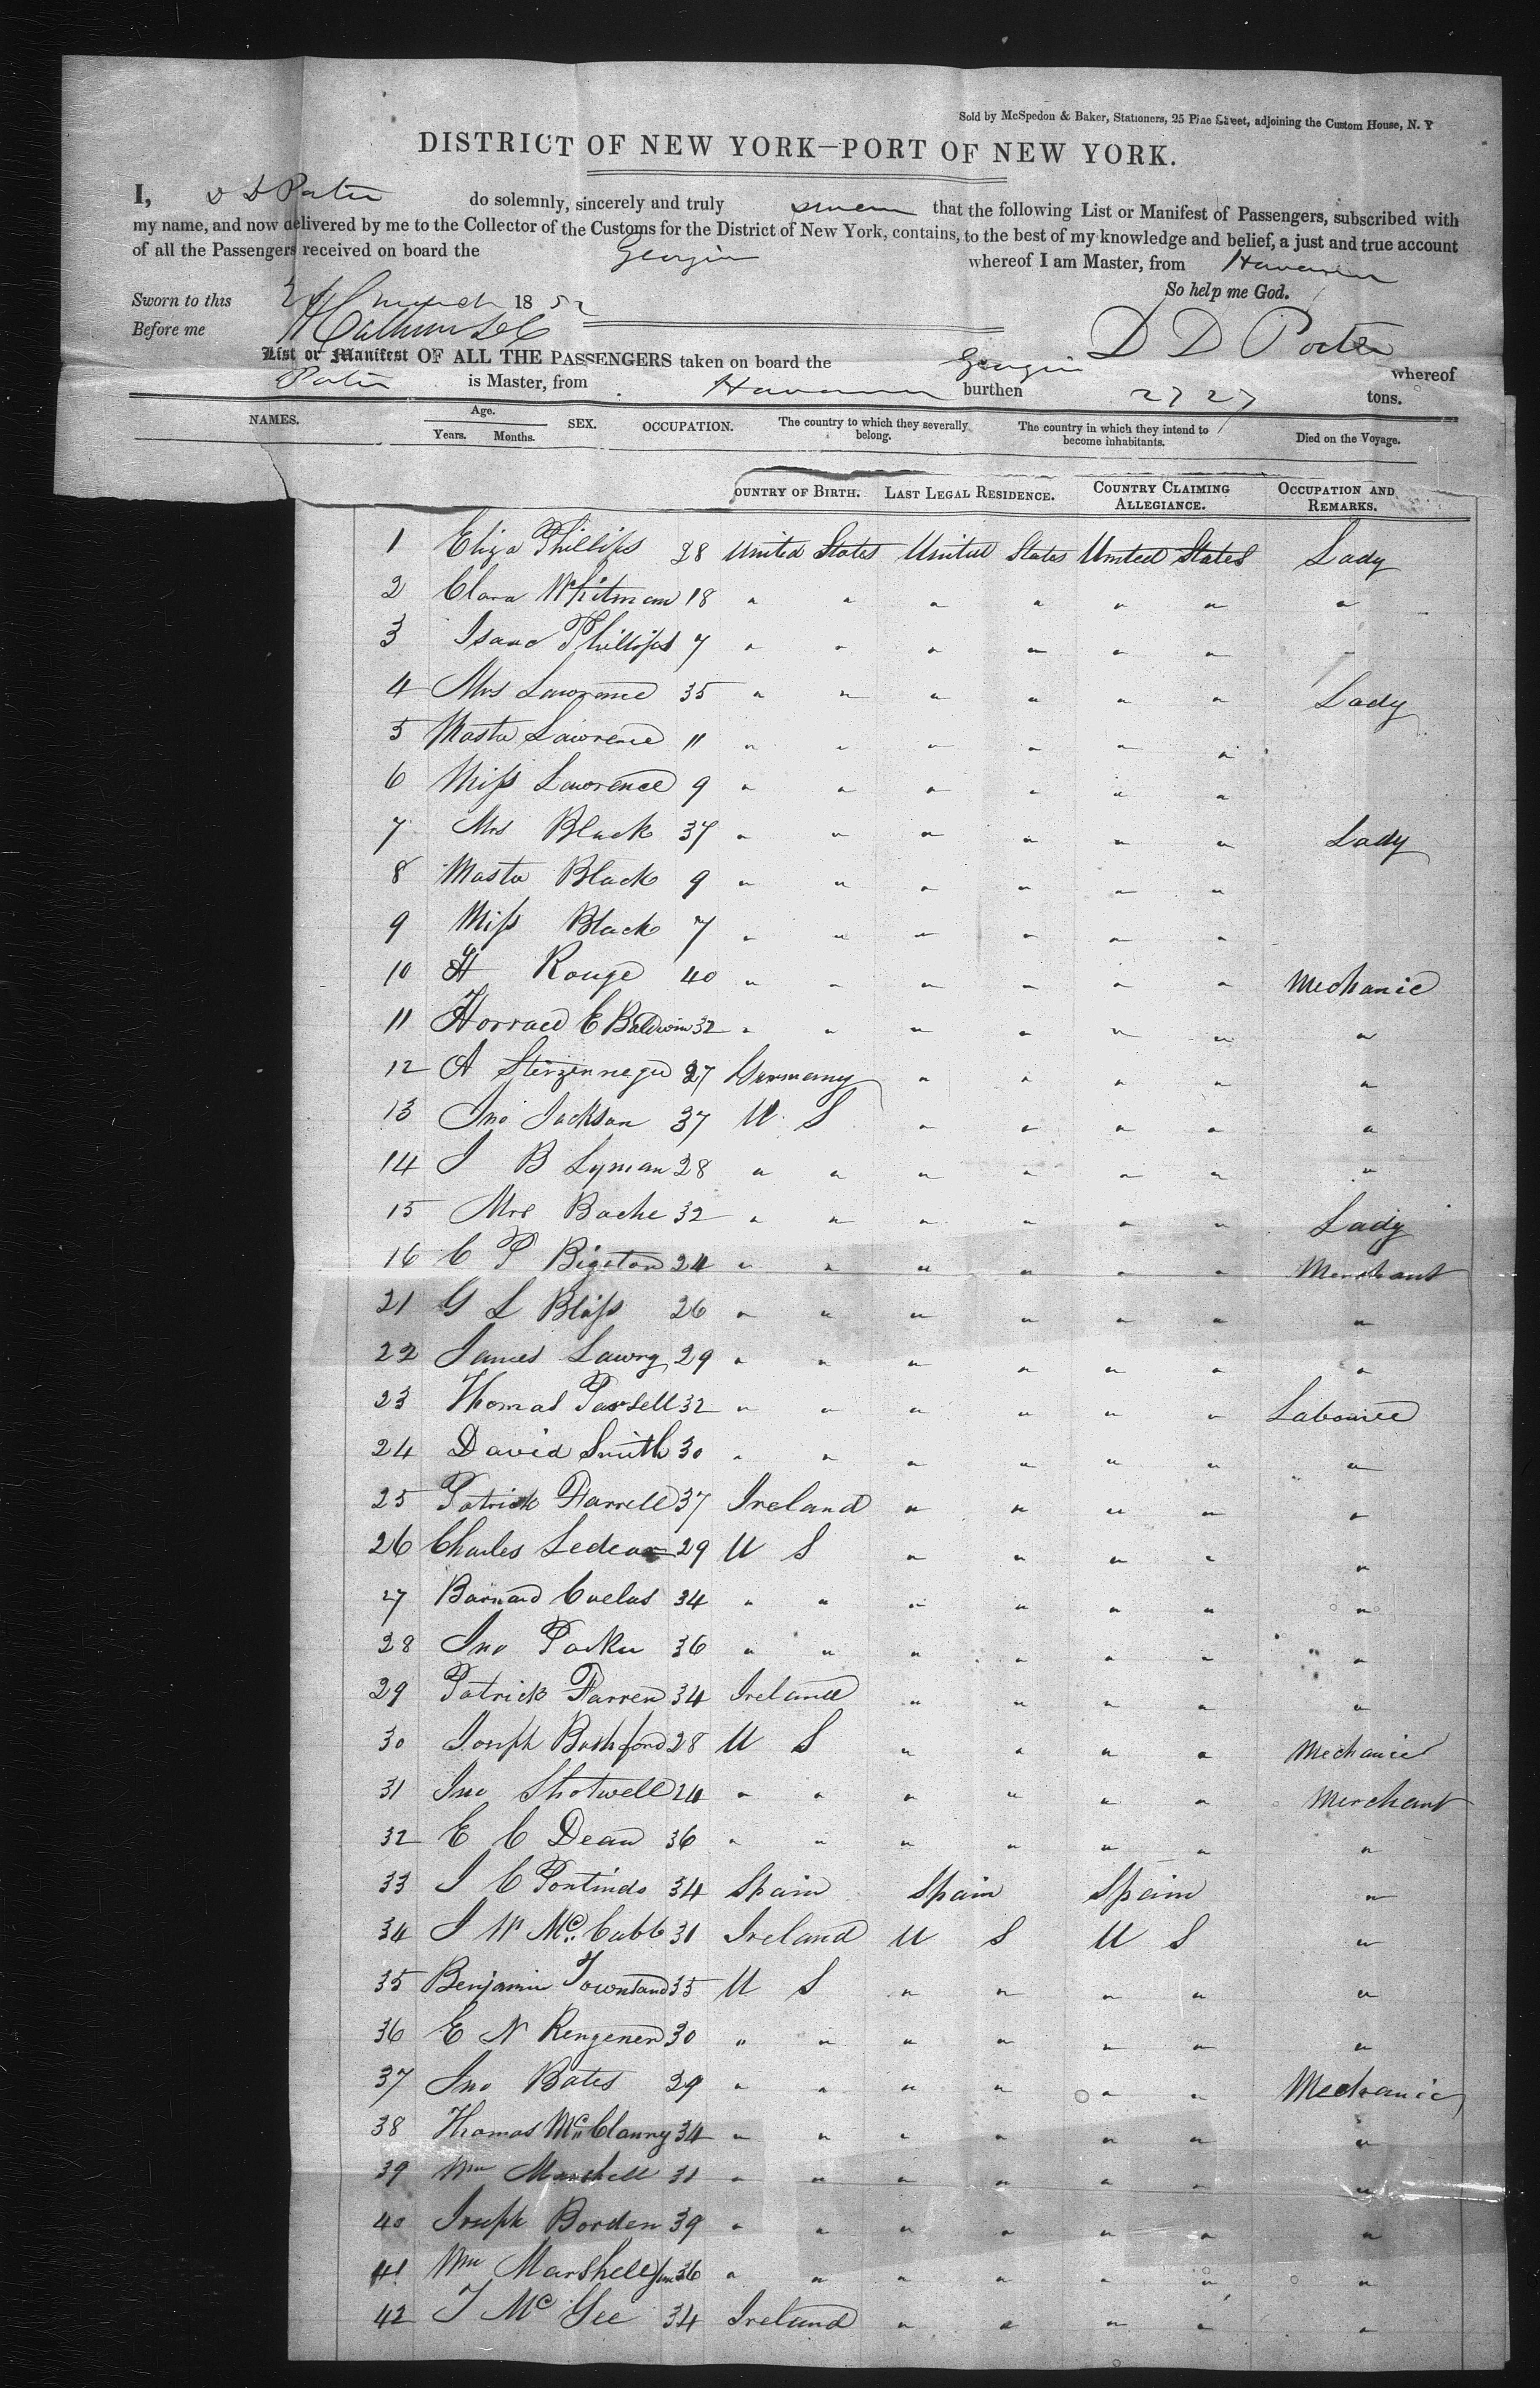 Sold by McSpedon & Baker, Stationers, 25 Pine Street, adjoining the Custom House, N. Y
DISTRICT OF NEW YORK—PORT OF NEW YORK.
I, D D Porter do solemnly, sincerely and truly swear that the following List or Manifest of Passengers, subscribed with
my name, and now delivered by me to the Collector of the Customs for the District of New York, contains, to the best of my knowledge and belief, a just and true account
of all the Passengers received on board the Georgia whereof I am Master, from Havana
So help me God.
Sworn to this 24 March 1852
Before me
D D Porter
List or Manifest OF ALL THE PASSENGERS taken on board the Georgia whereof
Porter is Master, from Havana burthen 2727 tons.
NAMES. Age. Years. Months. SEX. OCCUPATION. The country to which they severally belong. The country in which they intend to become inhabitants. Died on the Voyage.
OUNTRY OF BIRTH. LAST LEGAL RESIDENCE. COUNTRY CLAIMING ALLEGIANCE. OCCUPATION AND REMARKS.
1 Eliza Phillips 28 United States United States United States Lady
2 Clara Whitman 18 " " " " " " "
3 Isaac Phillips 7 " " " " " "
4 Mrs Lawrence 35 " " " " " " Lady
5 Master Lawrence 11 " " " " " "
6 Miss Lawrence 9 " " " " " "
7 Mrs Black 37 " " " " " " Lady
8 Master Black 9 " " " " " "
9 Miss Black 7 " " " " " "
10 H Rouge 40 " " " " " " Mechanic
11 Horrace E Baldwin 32 " " " " " " "
12 A 27 Germany " " " " "
13 Jno Jackson 37 U S " " " " "
14 J B Lyman 28 " " " " " " "
15 Mrs Bache 32 " " " " " " Lady
16 C P Bigston 24 " " " " " " Merchant
21 G L Bliss 26 " " " " " " "
22 James Lawry 29 " " " " " " "
23 Thomas 32 " " " " " " Labourer
24 David Smith 30 " " " " " " "
25 Patrick Farrell 37 Ireland " " " " "
26 Charles 29 U S " " " " "
27 Barnard 34 " " " " " " "
28 Jno Parker 36 " " " " " " "
29 Patrick Farren 34 Ireland " " " " "
30 Joseph Bashford 28 U S " " " " Mechanic
31 Jno Shotwell 24 " " " " " " Merchant
32 E C Dean 36 " " " " " " "
33 J C 34 Spain Spain Spain "
34 J W McCabb 31 Ireland U S U S "
35 Benjamin Townsand 35 U S " " " " "
36 E N Rengener 30 " " " " " " "
37 Jno Bates 29 " " " " " " Mechanic
38 Thomas McClanny 34 " " " " " " "
39 Wm Marshell 31 " " " " " " "
40 Joseph Borden 39 " " " " " " "
41 Wm Marshell Jun 36 " " " " " " "
42 T McGee 34 Ireland " " " " "